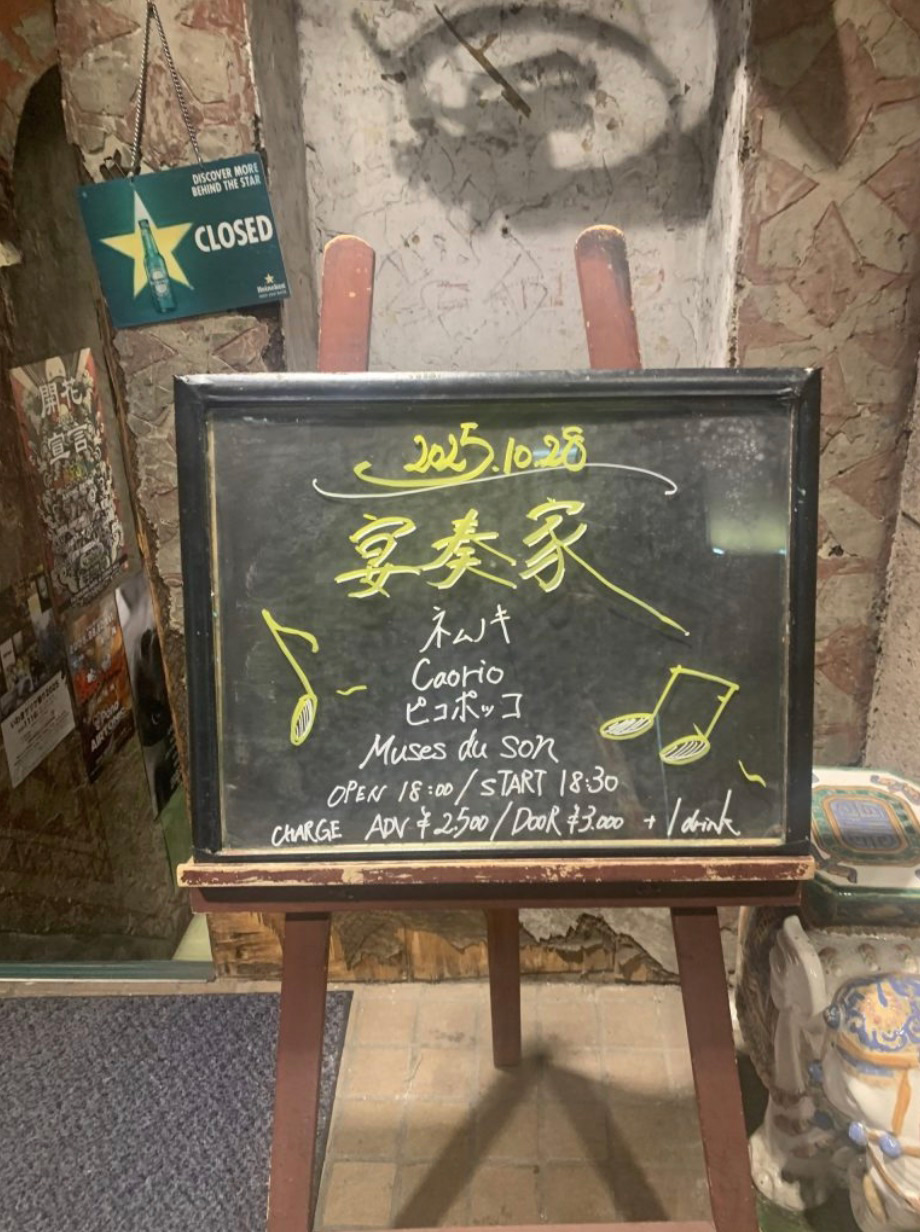 DISCOVER MORE
BEHIND THE STAR
CLOSED
Heineken
開花
宣言
2025.10.28
宴奏家
ネムノキ
Caorio
ピコポッコ
Muses du son
OPEN 18:00/START 18:30
CHARGE ADV ¥2,500/DOOR ¥3.000 + 1 drink